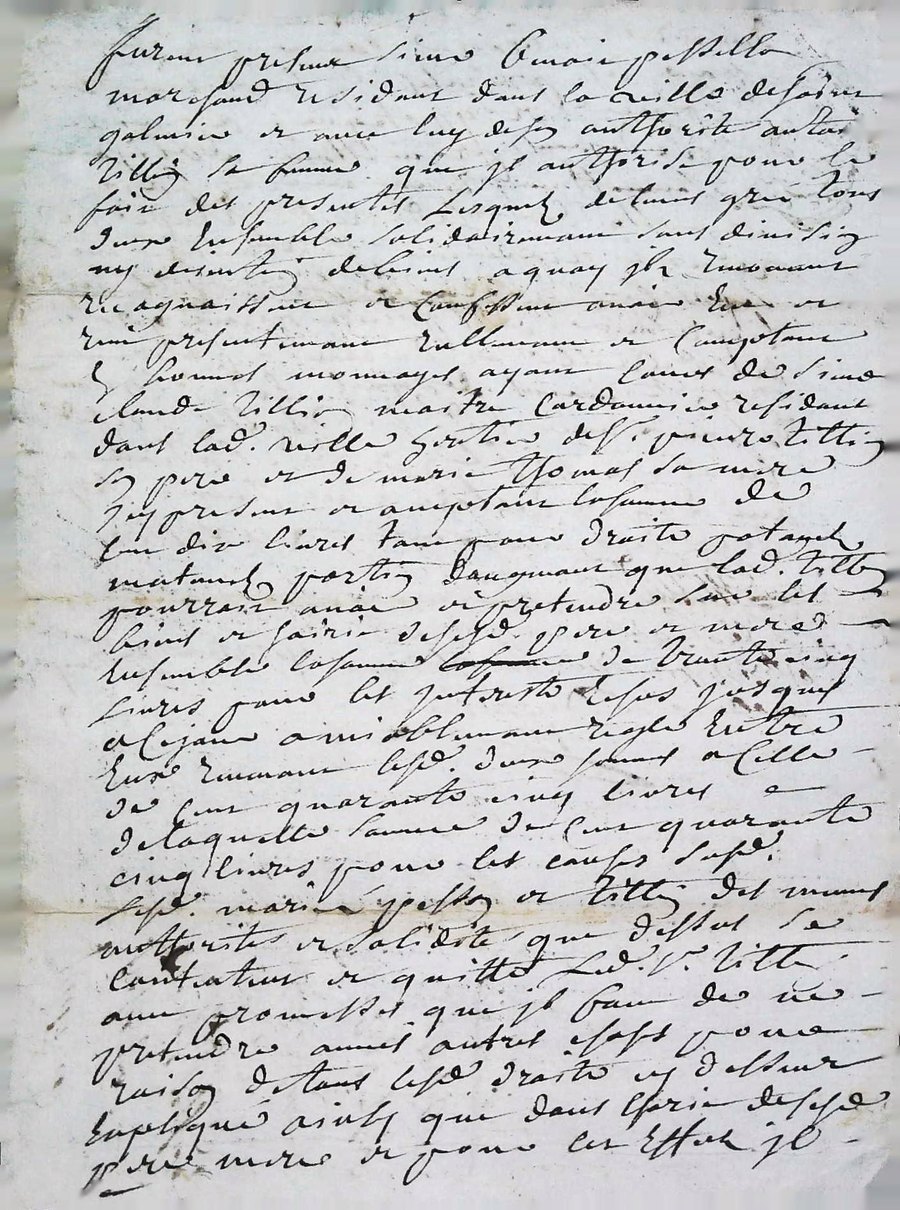 furent presens sieur benoit pesselle
marchand residant dans la ville de saint
galmier et avec luy de son authorité antoi
tillion sa femme que jl authorise pour le
fair des presentes lesquels de leurs gré tous
deux ensemble solidairement sans division
ny discution de biens a quoy jls renoncent
recognaissent et confessent avoir heu et
reçu presentement reellement et comptant
en bonnes monnoyes ayant cours de sieur
claude tillion maitre cordonnier residant
dans lad. ville heritier de f. pierre tillion
son pere et de marie thomas sa mere
jcy present et acceptant la somme de
cent dix livres tant pour droits
portion daugment que lad. tillion
pourroit avoir et pretendre sur les
biens et hoirie desd. pere et mere
ensemble la somme de trente cinq
livres pour les jnterests jusques
a ce jour amiablement reglé entre
eux revenant lesd. deux sommes a celle
de cent quarante cinq livres
de laquelle somme de cent quarante
cinq livres pour les causes susd.
lesd. mariés et tillion des memes
authorités et solidité que dessus se
contentent et quitte led. sr. tillion
avec promesses que jl font de ne
pretendre autres choses pour
raison de tous lesd. droits cy dessus
expliqué ainsy que dans lhoirie desd.
pere mere et pour cet effet jl